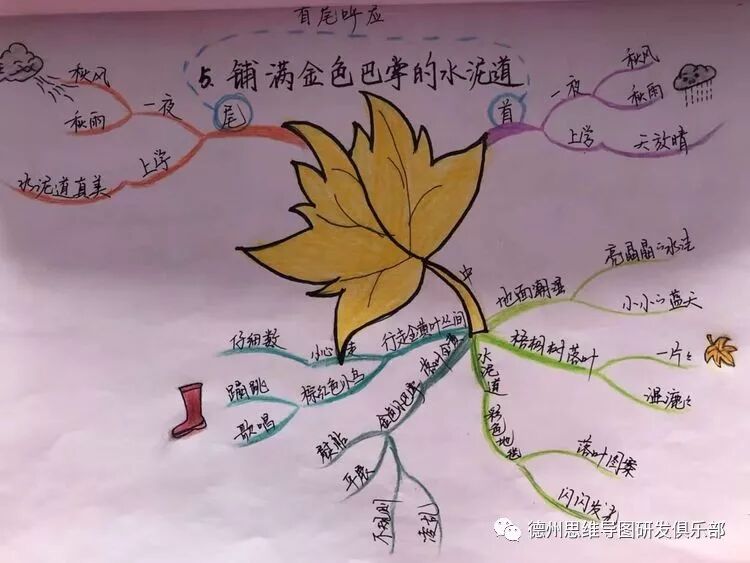 首尾呼应
5.铺满金色巴掌的水泥道
尾
一夜
秋风
秋雨
上学
水泥道真美
首
一夜
秋风
秋雨
上学
天放晴
中
地面潮湿
亮晶晶的水洼
小小的蓝天
梧桐树落叶
一片片
湿漉漉
水泥道
彩色地毯
落叶图案
闪闪发光
金色小巴掌
熨帖
平展
不规则
凌乱
行走金黄叶丛间
小心走
仔细数
棕红色小鸟
蹦跳
歌唱
德州思维导图研发俱乐部